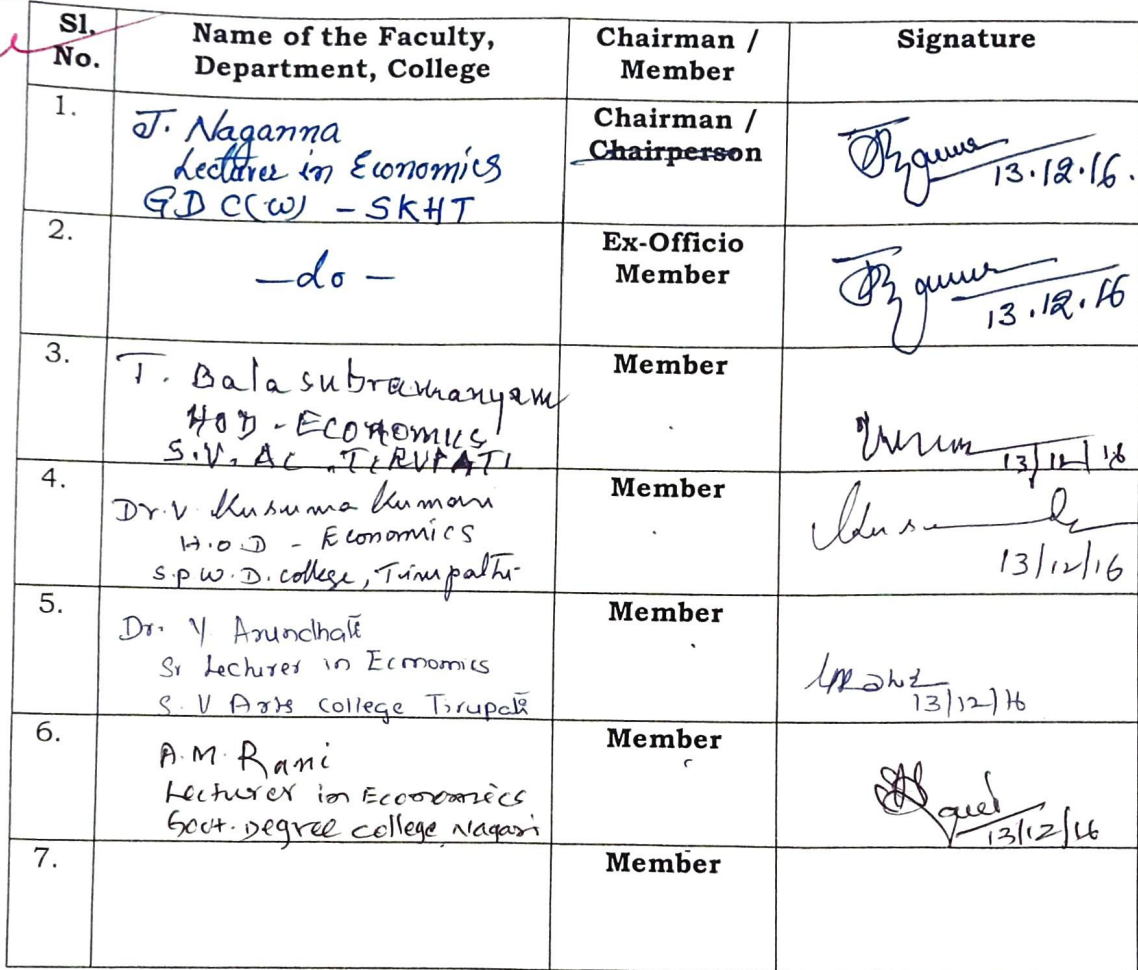 Sl. No.
Name of the Faculty, Department, College
Chairman / Member
Signature
1.
J. Naganna
Lecturer in Economics
GDC(W) - SKHT
Chairman /
Chairperson
13.12.16.
2.
- do -
Ex-Officio
Member
13.12.16
3.
T. Balasubramanyam
HOD - ECONOMICS
S.V. AC, TIRUPATI
Member
13/12/16
4.
Dr. V. Kusuma Kumari
H.O.D - Economics
S.P.W.D. college, Tirupathi
Member
13/12/16
5.
Dr. Y Arundhati
Sr Lecturer in Economics
S. V Arts college Tirupati
Member
13/12/16
6.
A.M. Rani
Lecturer in Economics
Govt. Degree college Nagari
Member
13/12/16
7.
Member